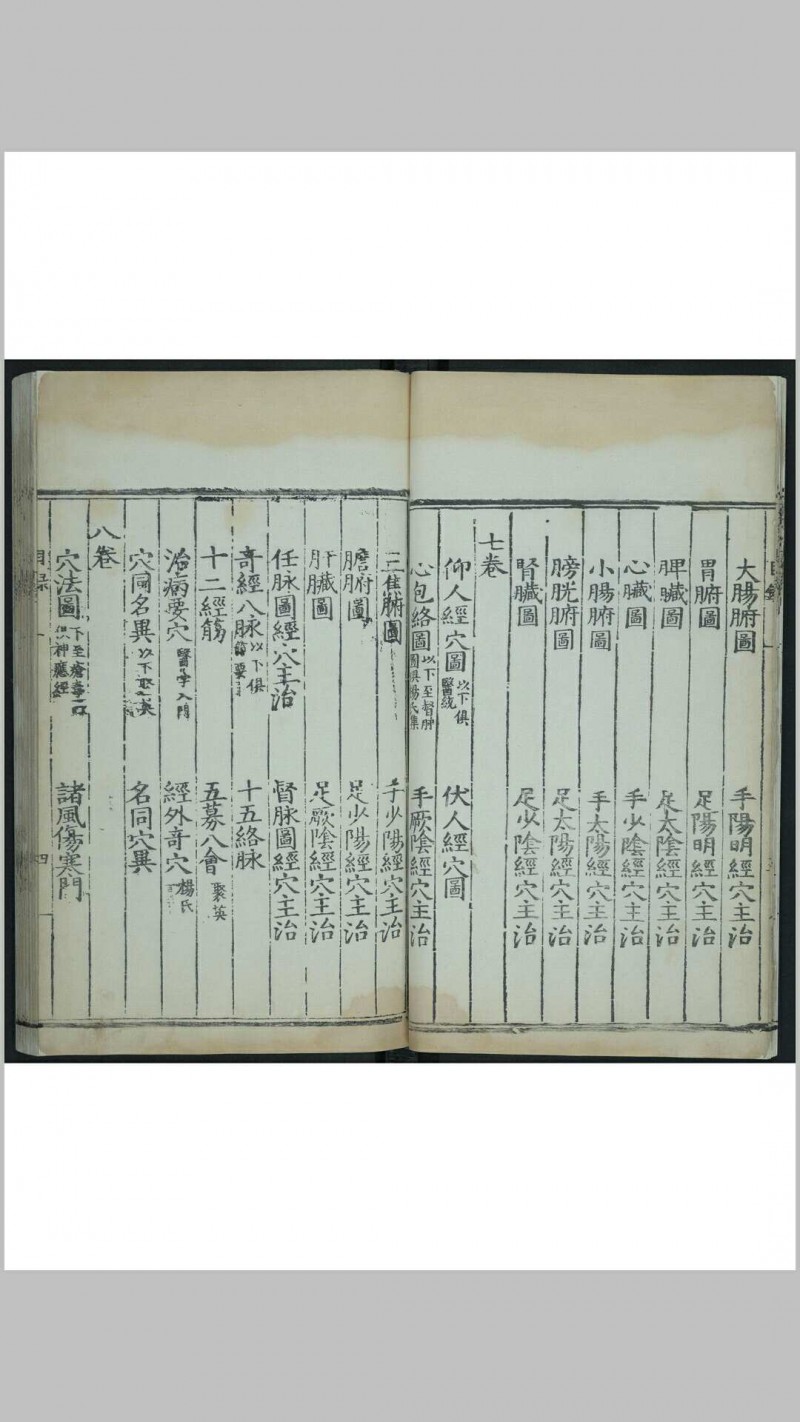 大腸腑圖　手陽明經穴主治
胃腑圖　足陽明經穴主治
脾臟圖　足太陰經穴主治
心臟圖　手少陰經穴主治
小腸腑圖　手太陽經穴主治
膀胱腑圖　足太陽經穴主治
腎臟圖　足少陰經穴主治
七卷
仰人經穴圖 以下俱醫統　伏人經穴圖
心包絡圖 以下至督脉圖俱楊氏集　手厥陰經穴主治
三焦腑圖　手少陽經穴主治
膽腑圖　足少陽經穴主治
肝臟圖　足厥陰經穴主治
任脉圖經穴主治　督脉圖經穴主治
奇經八脉 以下俱節要　十五絡脉
十二經筋　五募八會 聚英
治病要穴 醫學入門　經外奇穴 楊氏
穴同名異 以下聚英　名同穴異
八卷
穴法圖 下至瘡毒 俱神應經　諸風傷寒門
目录　四